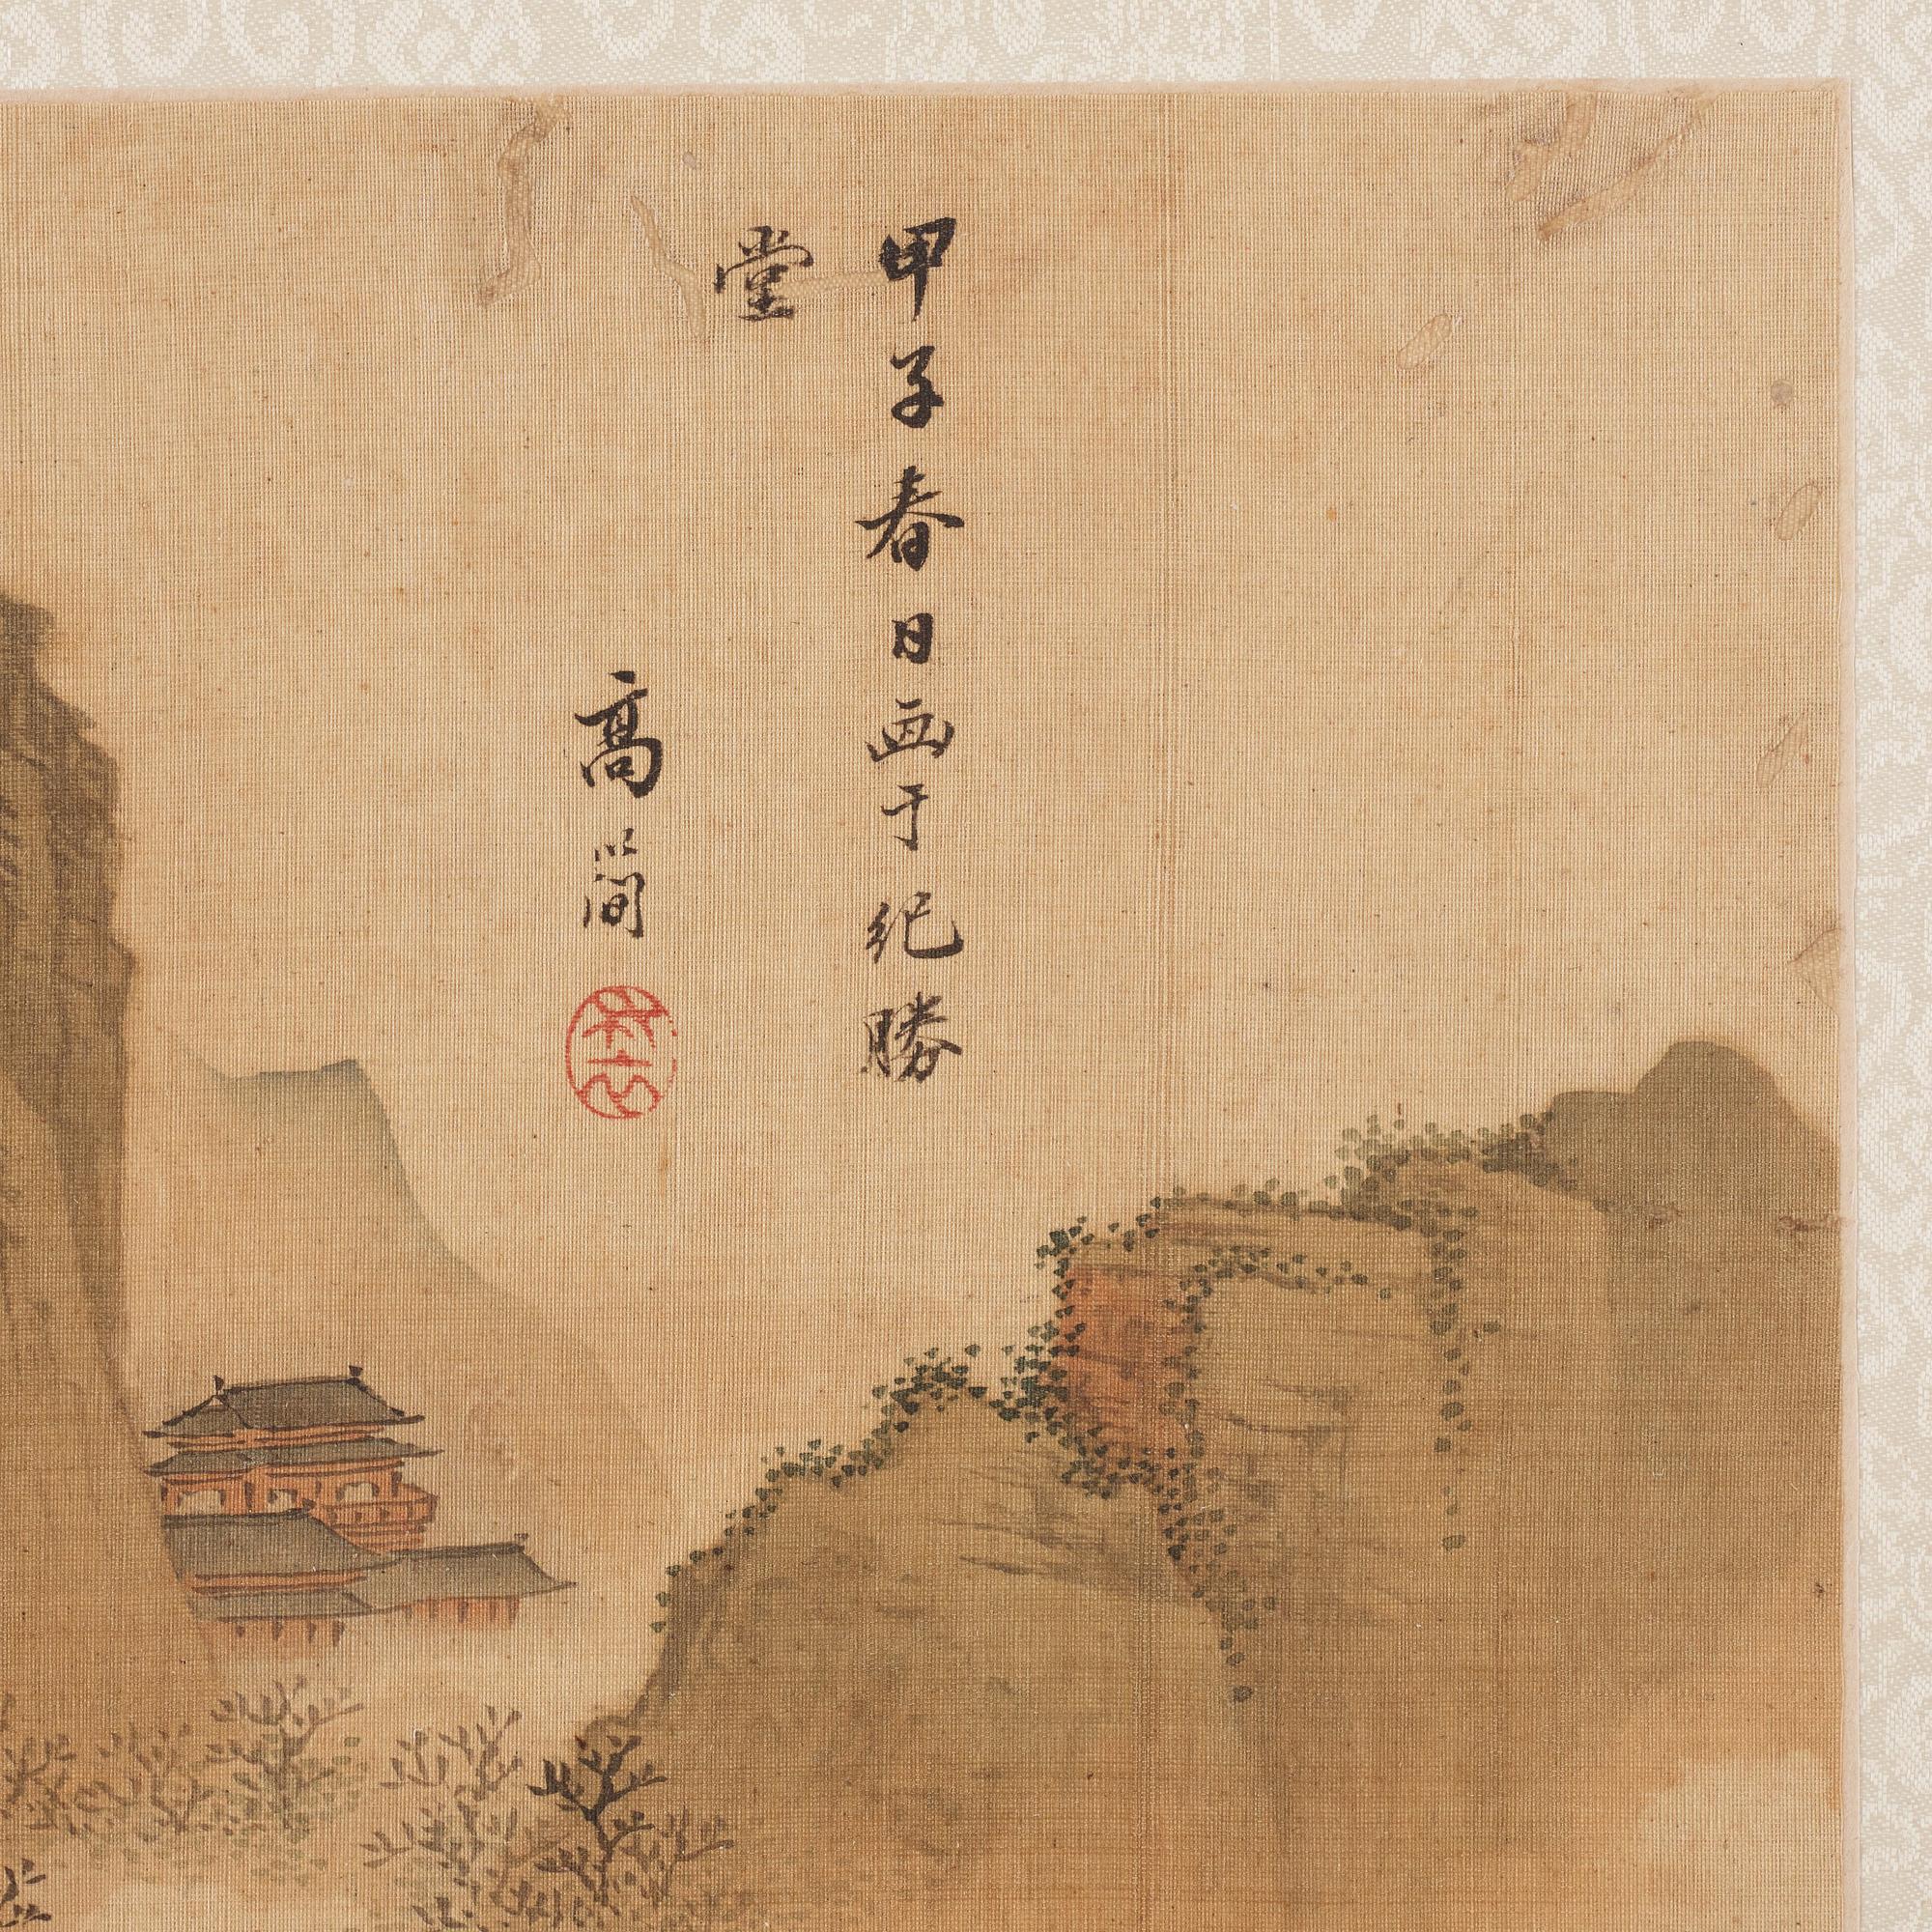 甲子春日画于纪勝
堂
高简